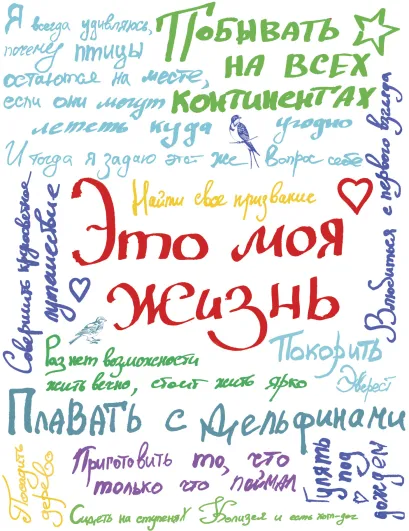 Я всегда удивляюсь,
почему птицы
остаются на месте,
если они могут
лететь куда угодно
И тогда я задаю этот же вопрос себе
Побывать
на всех
континентах
Найти свое призвание
Совершить кругосветное
путешествие
Влюбиться с первого взгляда
Это моя
жизнь
Раз нет возможности
жить вечно, стоит жить ярко
Покорить
Эверест
Плавать с дельфинами
Посадить
дерево
Приготовить то, что
только что поймал
Гулять
под
дождем
Сидеть на ступенях
и есть хот-дог